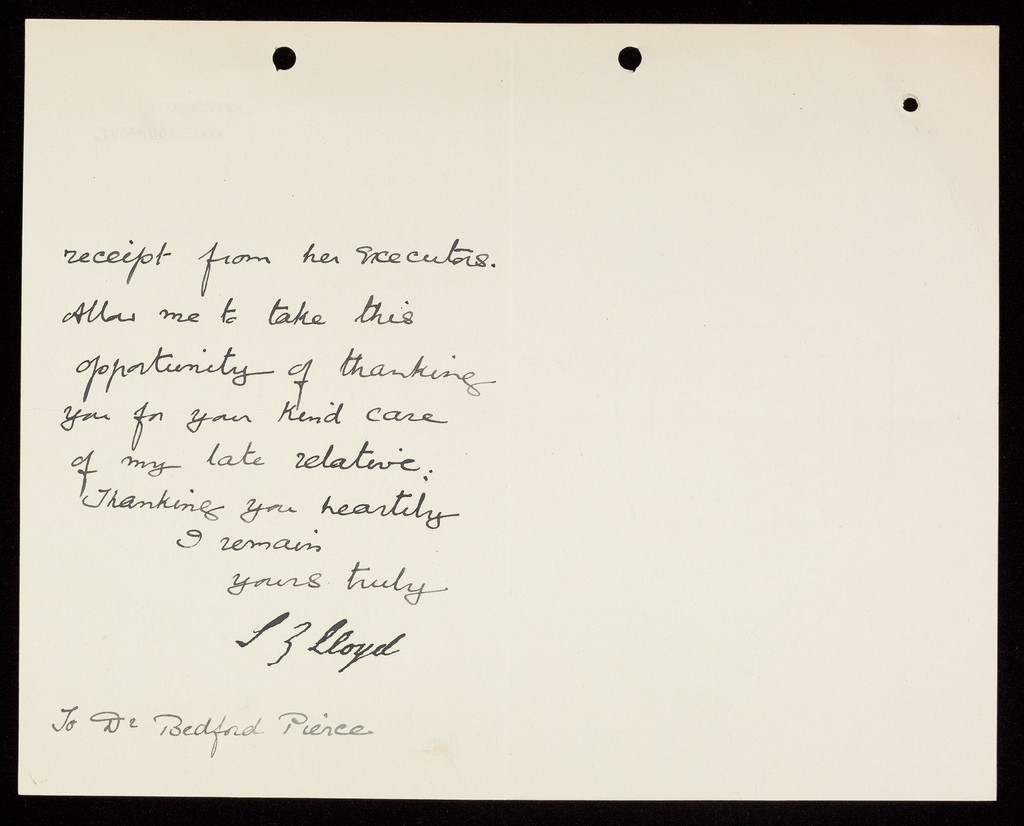 receipt from her Executors.
Allow me to take this
opportunity of thanking
you for your kind care
of my late relative.
Thanking you heartily
I remain
yours truly
Lloyd
To Dr Bedford Pierce